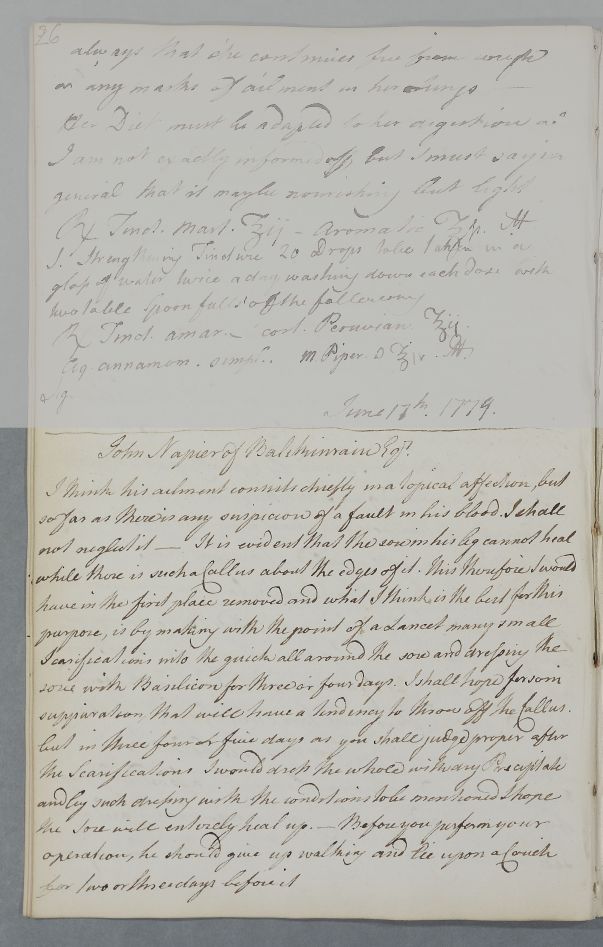 26
always that she continues free from cough
or any marks of ailment in her lungs —
Her Diet must be adapted to her digestion as
I am not exactly informed off, but I must say in
general that it may be nourishing but light
Rx Tinct. Mart. ʒij – aromatic ʒß. M
S. Strengthening Tincture 20 Drops to be taken in a
glass of water twice a day washing down each dose with
two table spoonfulls of the following
Rx Tinct. amar. – cort. Peruvian. ʒij.
Aq. cinnamom. simpl. m Piper. M.
June 17th. 1779.
John Napier of Balchinrain Esqr.
I think his ailment consists chiefly in a topical affection, but
so far as there is any suspicion of a fault in his blood. I shall
not neglect it — It is evident that the sore in his leg cannot heal
while there is such a Callus about the edges of it. This therefore I would
have in the first place removed and what I think is the best for this
purpose, is by making with the point of a Lancet many small
Scarifications into the quick all around the sore and dressing the
sore with Basilicon for three or four days. I shall hope for som
suppuration that will have a tendency to throw off the Callus.
but in three four or five days as you shall judge proper after
the Scarifications I would dress the whole with dry Precipitate
and by such dressing with the conditions to be mentioned I hope
the sore will entirely heal up. — Before you perform your
operation, he should give up walking and lie upon a Couch
for two or three days before it